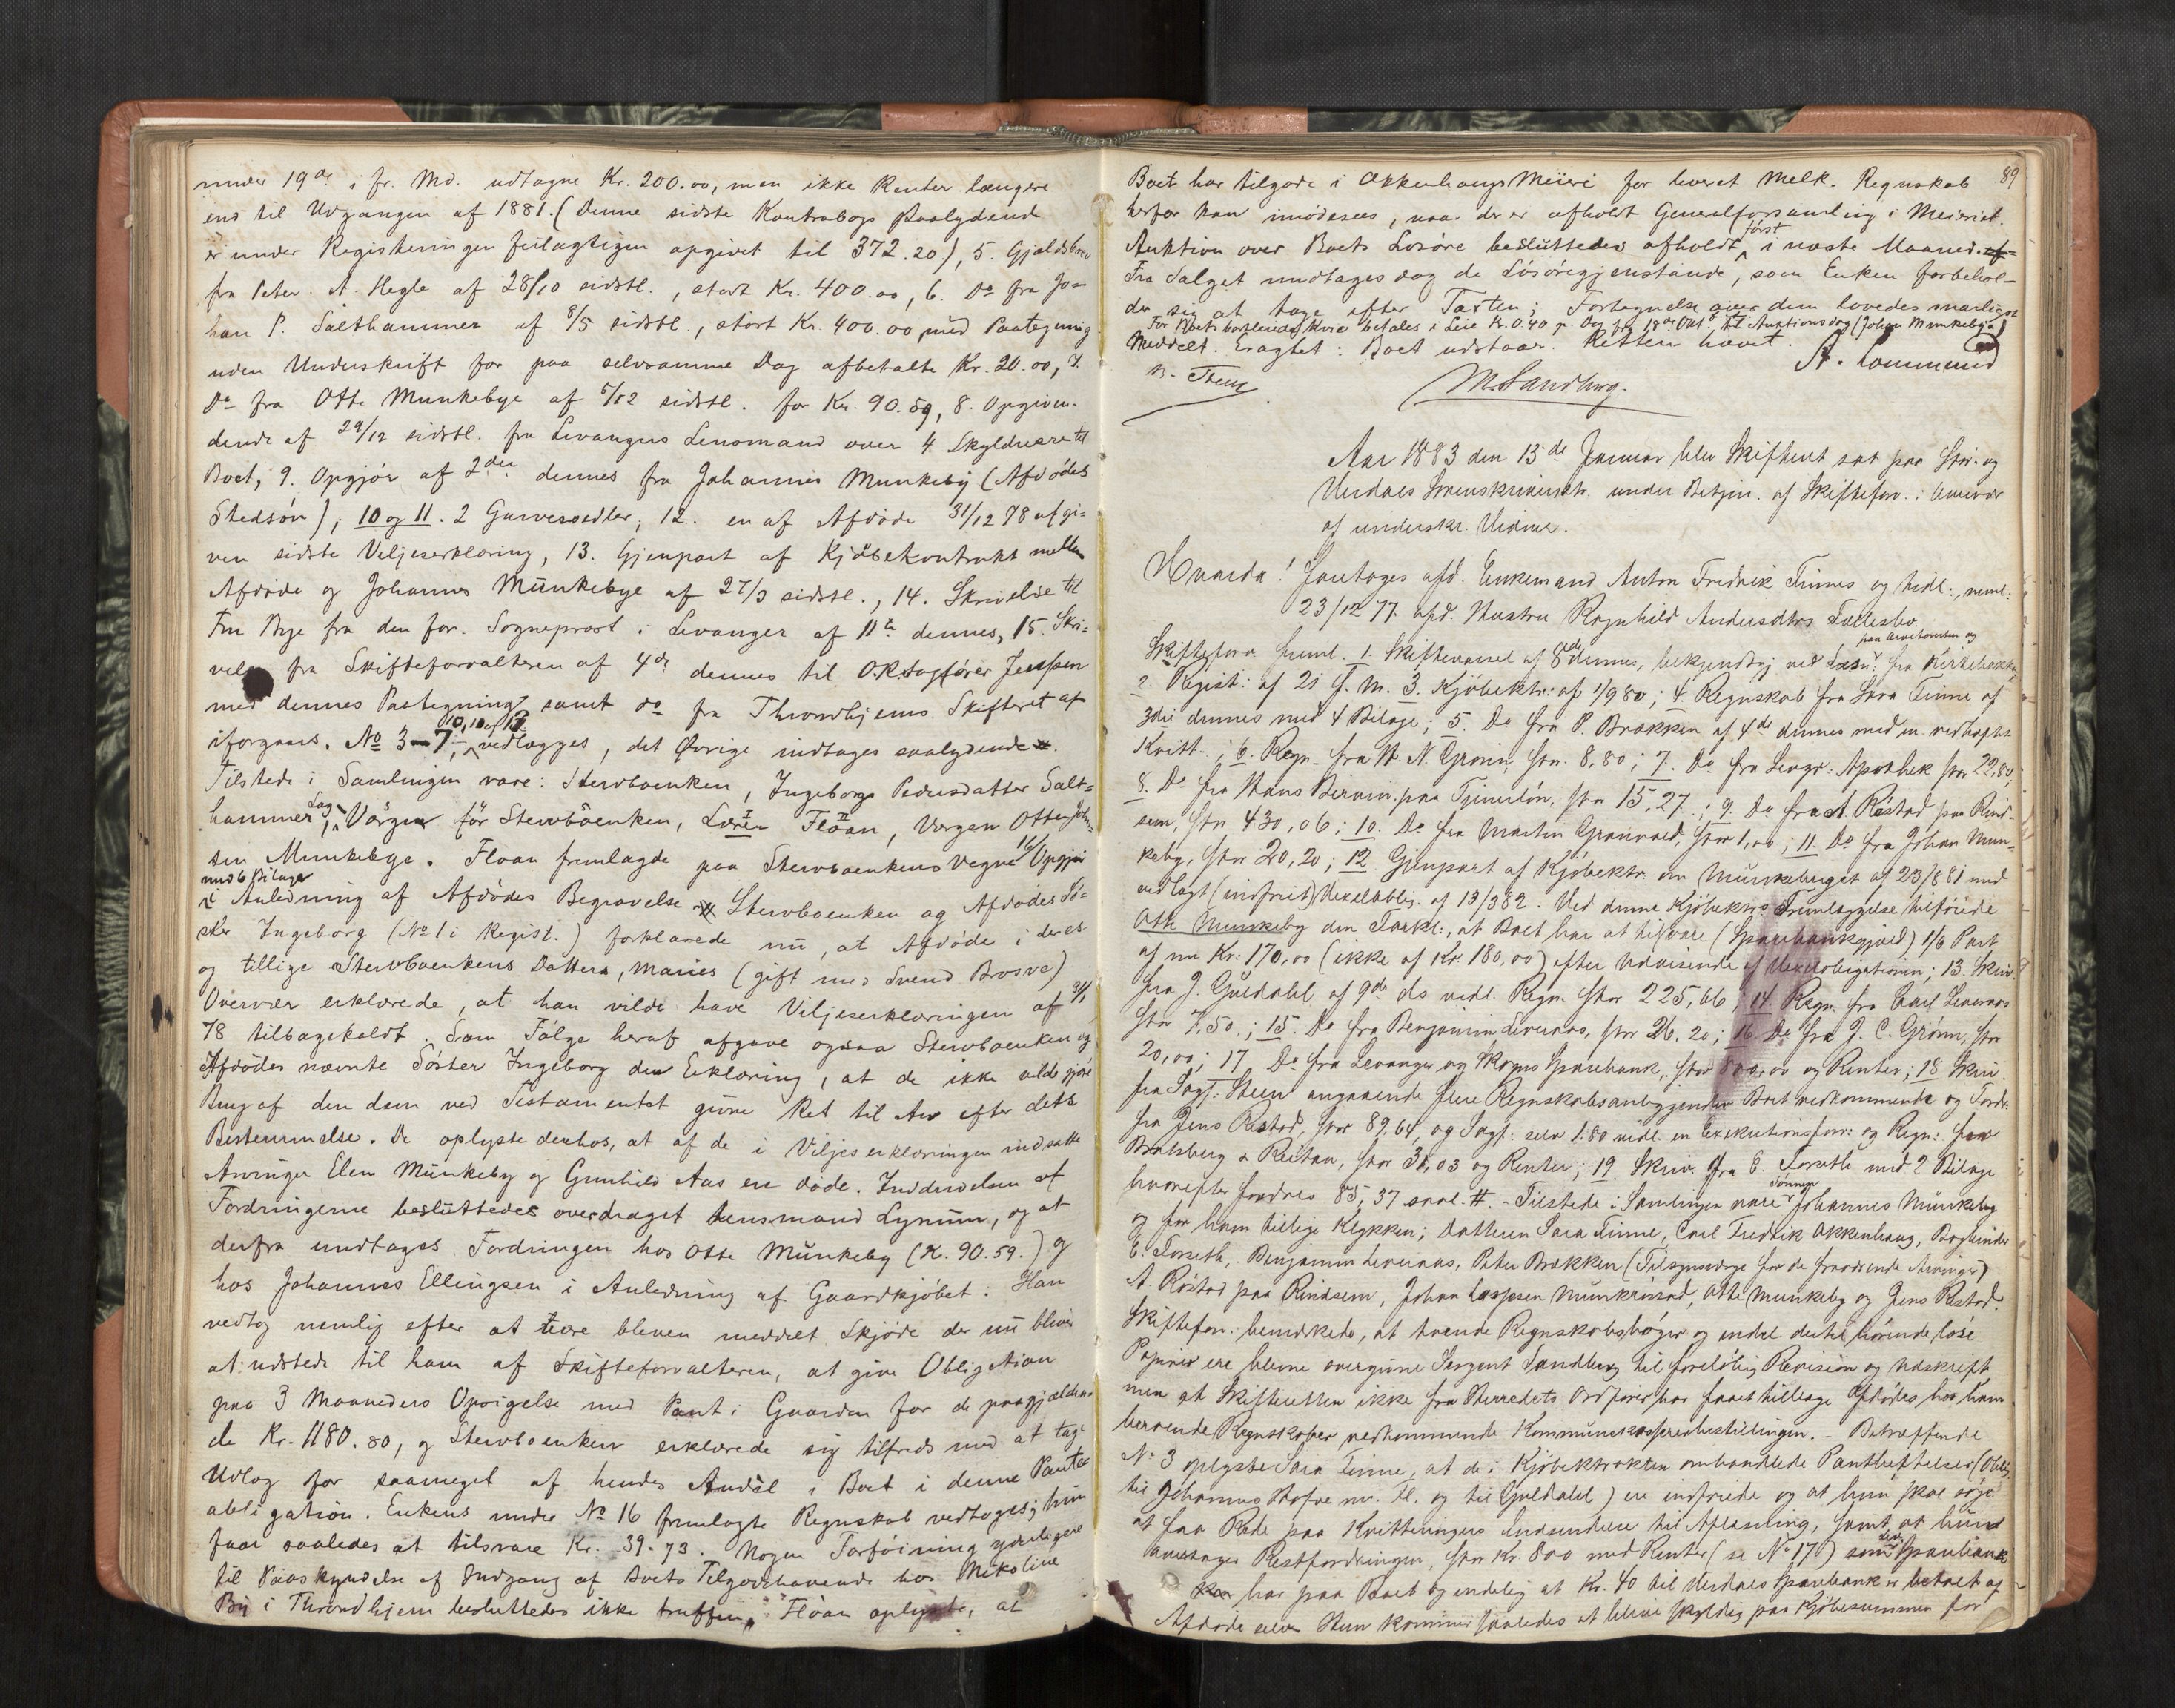 under 19de i fr. Md. udtagne Kr. 200.00, men ikke Renter længere
end til Udgangen af 1881. (Denne sidste Kontrabogs Paalydende
er under Registreringen feilagtigen opgivet til 372.20), 5. Gjældsbrev
fra Peter A. Hegle af 28/10 sidstl., stort Kr. 400.00, 6. Do fra Jo=
han P. Salthammer af 8/5 sidstl., stort Kr. 400.00 med Paategning
uden Underskrift for paa selvsamme Dag afbetalte Kr. 20.00, 7.
Do fra Otte Munkebye af 5/12 sidstl. for Kr. 90.59, 8. Opgiven-
dende af 29/12 sidstl. fra Levangers Lensmand over 4 Skyldnere til
Boet, 9. Opgjør af 2den dennes fra Johannes Munkeby (Afdødes
Stedsøn), 10 og 11. 2 Garversedler, 12. en af Afdøde 31/12 78 afgi=
ven sidste Viljeserklæring, 13. Gjenpart af Kjøbekontrakt mellem
Afdøde og Johannes Munkebye af 27/3 sidstl., 14. Skrivelse til
Fru Bye fra den for. Sogneprest i Levanger af 11te dennes, 15. Skri=
velse fra Skifteforvalteren af 4de dennes til O.R.sagfører Jenssen
med dennes Paategning samt do fra Throndhjems Skifteret af
iforgaars. No 3-7, 10, 12 og 13 vedlægges, det Øvrige indtages saalydende #.
Tilstede i Samlingen vare: Stervboenken, Ingeborg Pedersdatter Salt=
hammer, Lag-Værgen for Stervboenken, Floan, Vergen Otte Joh=
sen Munkebye. Floan fremlagde paa Stervboenkens Vegne 16 Opgjør
med 6 Bilage
i Anledning af Afdødes Begravelse # Stervboenken og Afdødes Sø=
ster Ingeborg (No 1 i Regist.) forklarede nu, at Afdøde i deres
og tillige Stervboenkens Datters, Maries (gift med Svend Bosve)
Overvær erklærede, at han vilde have Viljeserklæringen af 31/12
78 tilbagekaldt. Som Følge heraf afgave ogsaa Stervboenken og
Afdødes nævnte Søster Ingeborg den Erklæring, at de ikke vilde gjøre
Brug af den dem ved Testamentet givne Ret til Arv efter dets
Bestemmelse. De oplyste derhos, at af de i Viljeserklæringen indsatte
Arvinger Elen Munkeby og Gunhild Aas ere døde. Inddrivelsen af
Fordringerne besluttedes overdraget Lensmand Lynum, og at
derfra undtages Fordringen hos Otte Munkeby (K. 90.59.) og
hos Johannes Ellingsen i Anledning af Gaardkjøbet. Han
vedtog nemlig efter at være bleven meddelt Skjøde der nu bliver
at udstede til ham af Skifteforvalteren, at give Obligation
paa 3 Maaneders Opsigelse med Pant i Gaarden for de paagjælden-
de Kr. 1180.80, og Stervboenken erklærede sig tilfreds med at tage
Udlog for saameget af hendes Andel i Boet i denne Pante
obligation. Enkens under No 16 fremlagte Regnskab vedtoges; hun
faar saaledes at tilsvare Kr. 39.73. Nogen Forføining yderligere
til Paaskyndelse af Indgang af Boets Tilgodehavende hos Nikoline
By i Throndhjem besluttedes ikke truffen. Floan oplyste, at
89
Boet har tilgode i Okkenhaugs Meieri for leveret Melk. Regnskab
herfor kan imødesees, naar der er afholdt Generalforsamling i Meieriet.
Auktion over Boets Løsøre besluttedes afholdt først i næste Maaned.
Fra Salget undtages dog de Løsøregjenstande, som Enken forbehol-
der sig at tage efter Taxten; Fortegnelse over dem lovedes
For Boets bortleiede Kvie betales i Leie Kr. 0.40 p. Dag fra 18de Okt. til Auktionsdag (Johan Munkebye)
Meddelt. Eragtet: Boet udstaar. Retten hævet.
M. Sandberg.
Aar 1883 den 13de Januar blev Skifteret sat paa Stør- og
Værdals Sorenskriverktr. under Betjen. af Skifteforv. i Overvær
af underskr. Vidner.
Hvorda! Foretoges afd. Enkemand Anton Fredrik Tinnes og tidl., neml.
23/12 77. afd. Hustru Ragnhild Andersdtrs Fællesbo.
Skifteforv. freml. 1. Skiftevarsel af 8de dennes, bekjendtgj. ved Læsn. paa Arvetomten og fra Kirkebakken,
2. Regist: af 21 f. M. 3. Kjøbektr: af 1/9 80; 4. Regnskab fra Sara Tinne af
3die dennes med 4 Bilage; 5. Do fra P. Brakken af 4de dennes med en vedhæftet
Kvitt.; 6. Regn. fra N. Grønn, stor 8,80; 7. Do fra Levgr: Apothek stor 22,80;
8. Do fra Hans paa stor 15,27.; 9. Do fra A. Røstad paa Rind-
sem, stor 430,06; 10. Do fra Martin Granvold, stor 1,00; 11. Do fra Johan Mun-
keby, stor 20,20; 12. Gjenpart af Kjøbektr. om Munkeberget af 23/8 81 med
vedlagt (indfriet) Vexelobblig. af 13/3 82. Ved denne Kjøbektrs Fremlæggelse tilføiede
Otte Munkeby den Forkl:, at Boet har at tilsvare (Sparebankgjæld) 1/6 Part
af nu Kr: 170,00 (ikke af Kr. 180,00) efter Udvisende af Vexelobligationen; 13. Skriv.
fra J. Guldahl af 9de ds vedl. Regn. stor 225,66; 14. Regn. fra Carl Levernæs
stor 7,50.; 15. Do fra Benjamin Levernæs, stor 26,20; 16. Do fra J. C. Grønn, stor
20,00; 17 Do fra Levanger og Skogns Sparebank, stor 800,00 og Renter; 18. Skriv.
fra Sagf: Steen angaaende flere Regnskabsanliggender Boet vedkommende og Fordr.
fra Jens Røstad, stor 89,64, og Sagf. selv 1.80 vedl. en Exekutionsforr: og Regn: fra
Bratsberg & Reitan, stor 31,03 og Renter; 19. Skriv. fra E. Forseth med 2 Bilage
hvorefter fordres 85,37 saal. #. - Tilstede i Samlingen vare Sønnen Johannes Munkeby
og for ham tillige Klykken; Datteren Sara Tinne, Carl Fredrik Okkenhaug, Bogbinder
E. Forseth, Benjamin Levernæs, Peter Brakken (Tilsynsværge for de fraværende Arvinger)
A. Røstad paa Rindsem, Johan Munkrøstad, Otte Munkeby og Jens Røstad.
Skiftefor. bemærkede, at tvende Regnskabsbøger og endel dertil hørende løse
Papirer ere blevne overgivne Sergent Sandberg til foreløbig Revision og Udskrift
men at Skifteretten ikke fra Herredets Ordfører har faaet tilbage Afdødes hos ham
beroende Regnskaber vedkommende Kommunekassererbestillingen. - Betræffende
No 3 oplyste Sara Tinne, at de i Kjøbektrakten omhandlede Pantheftelser (Oblig.
til Johannes Hofve m. fl. og til Guldahl) ere indfriede og at hun skal søge
at faa Rede paa Kvitteringers Indsendelse til Aflæsning, samt at hun
overtager Restfordringen, stor Kr. 800 med Renter (se No 17) som Levgr Sparebank
har paa Boet og endelig at Kr. 40 til Værdals Sparebank er betalt af
Afdøde selv. Hun kommer saaledes at blive skyldig paa Kjøbesummen for